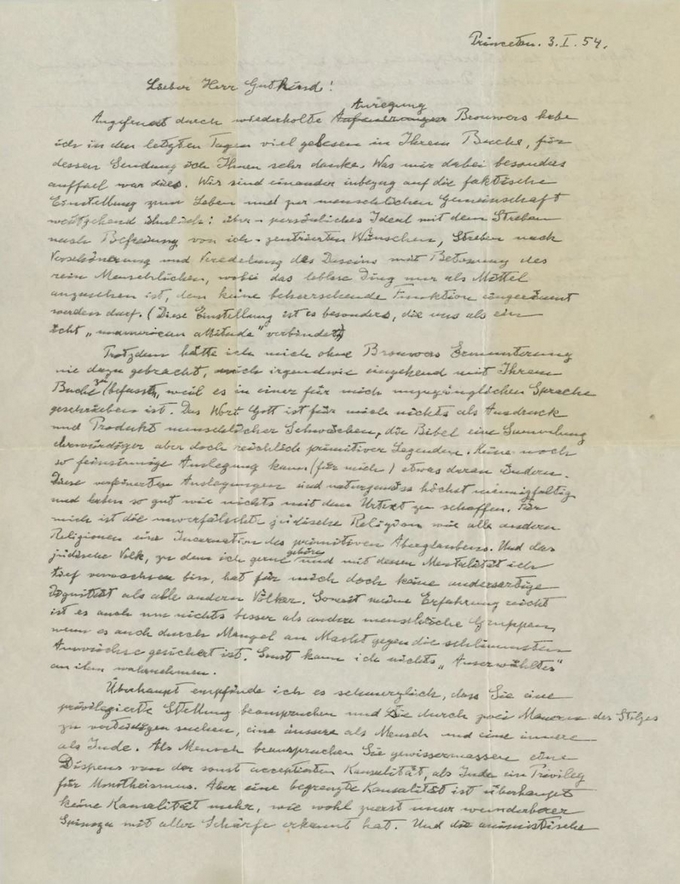 Princeton. 3. I. 54.
Lieber Herr Gutkind!
Anregung
Angefeuert durch wiederholte Brouwers habe
ich in den letzten Tagen viel gelesen in Ihrem Buche, für
dessen Sendung ich Ihnen sehr danke. Was mir dabei besonders
auffiel war dies. Wir sind einander inbezug auf die faktische
Einstellung zum Leben und zur menschlichen Gemeinschaft
weitgehend ähnlich: über-persönliches Ideal mit dem Streben
nach Befreiung von ich-zentrierten Wünschen, Streben nach
Verschönerung und Veredelung des Daseins mit Betonung des
rein Menschlichen, wobei das leblose Ding nur als Mittel
anzusehen ist, dem keine beherrschende Funktion eingeräumt
werden darf. (Diese Einstellung ist es besonders, die uns als ein
echt „unamerican attitude" verbindet)
Trotzdem hätte ich mich ohne Brouwers Ermunterung
nie dazu gebracht, mich irgendwie eingehend mit Ihrem
Buche zu befassen, weil es in einer für mich unzugänglichen Sprache
geschrieben ist. Das Wort Gott ist für mich nichts als Ausdruck
und Produkt menschlicher Schwächen, die Bibel eine Sammlung
ehrwürdiger aber doch reichlich primitiver Legenden. Keine noch
so feinsinnige Auslegung kann (für mich) etwas daran ändern.
Diese verfeinerten Auslegungen sind naturgemäss höchst mannigfaltig
und haben so gut wie nichts mit dem Urtext zu schaffen. Für
mich ist die unverfälschte jüdische Religion wie alle anderen
Religionen eine Incarnation des primitiven Aberglaubens. Und das
jüdische Volk, zu dem ich gerne gehöre und mit dessen Mentalität ich
tief verwachsen bin, hat für mich doch keine andersartige
Dignität als alle anderen Völker. Soweit meine Erfahrung reicht
ist es auch um nichts besser als andere menschliche Gruppen,
wenn es auch durch Mangel an Macht gegen die schlimmsten
Auswüchse gesichert ist. Sonst kann ich nichts „Auserwähltes"
an ihm wahrnehmen.
Überhaupt empfinde ich es schmerzlich, dass Sie eine
privilegierte Stellung beanspruchen und Sie durch zwei Mauern des Stolzes
zu verteidigen suchen, eine äussere als Mensch und eine innere
als Jude. Als Mensch beanspruchen Sie gewissermassen einen
Dispens von der sonst acceptierten Kausalität, als Jude ein Privileg
für Monotheismus. Aber eine begrenzte Kausalität ist überhaupt
keine Kausalität mehr, wie wohl zuerst unser wunderbarer
Spinoza mit aller Schärfe erkannt hat. Und die animistische